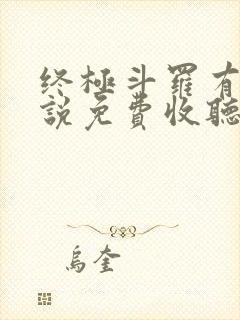 终極斗羅有
說免費收聽
烏奎